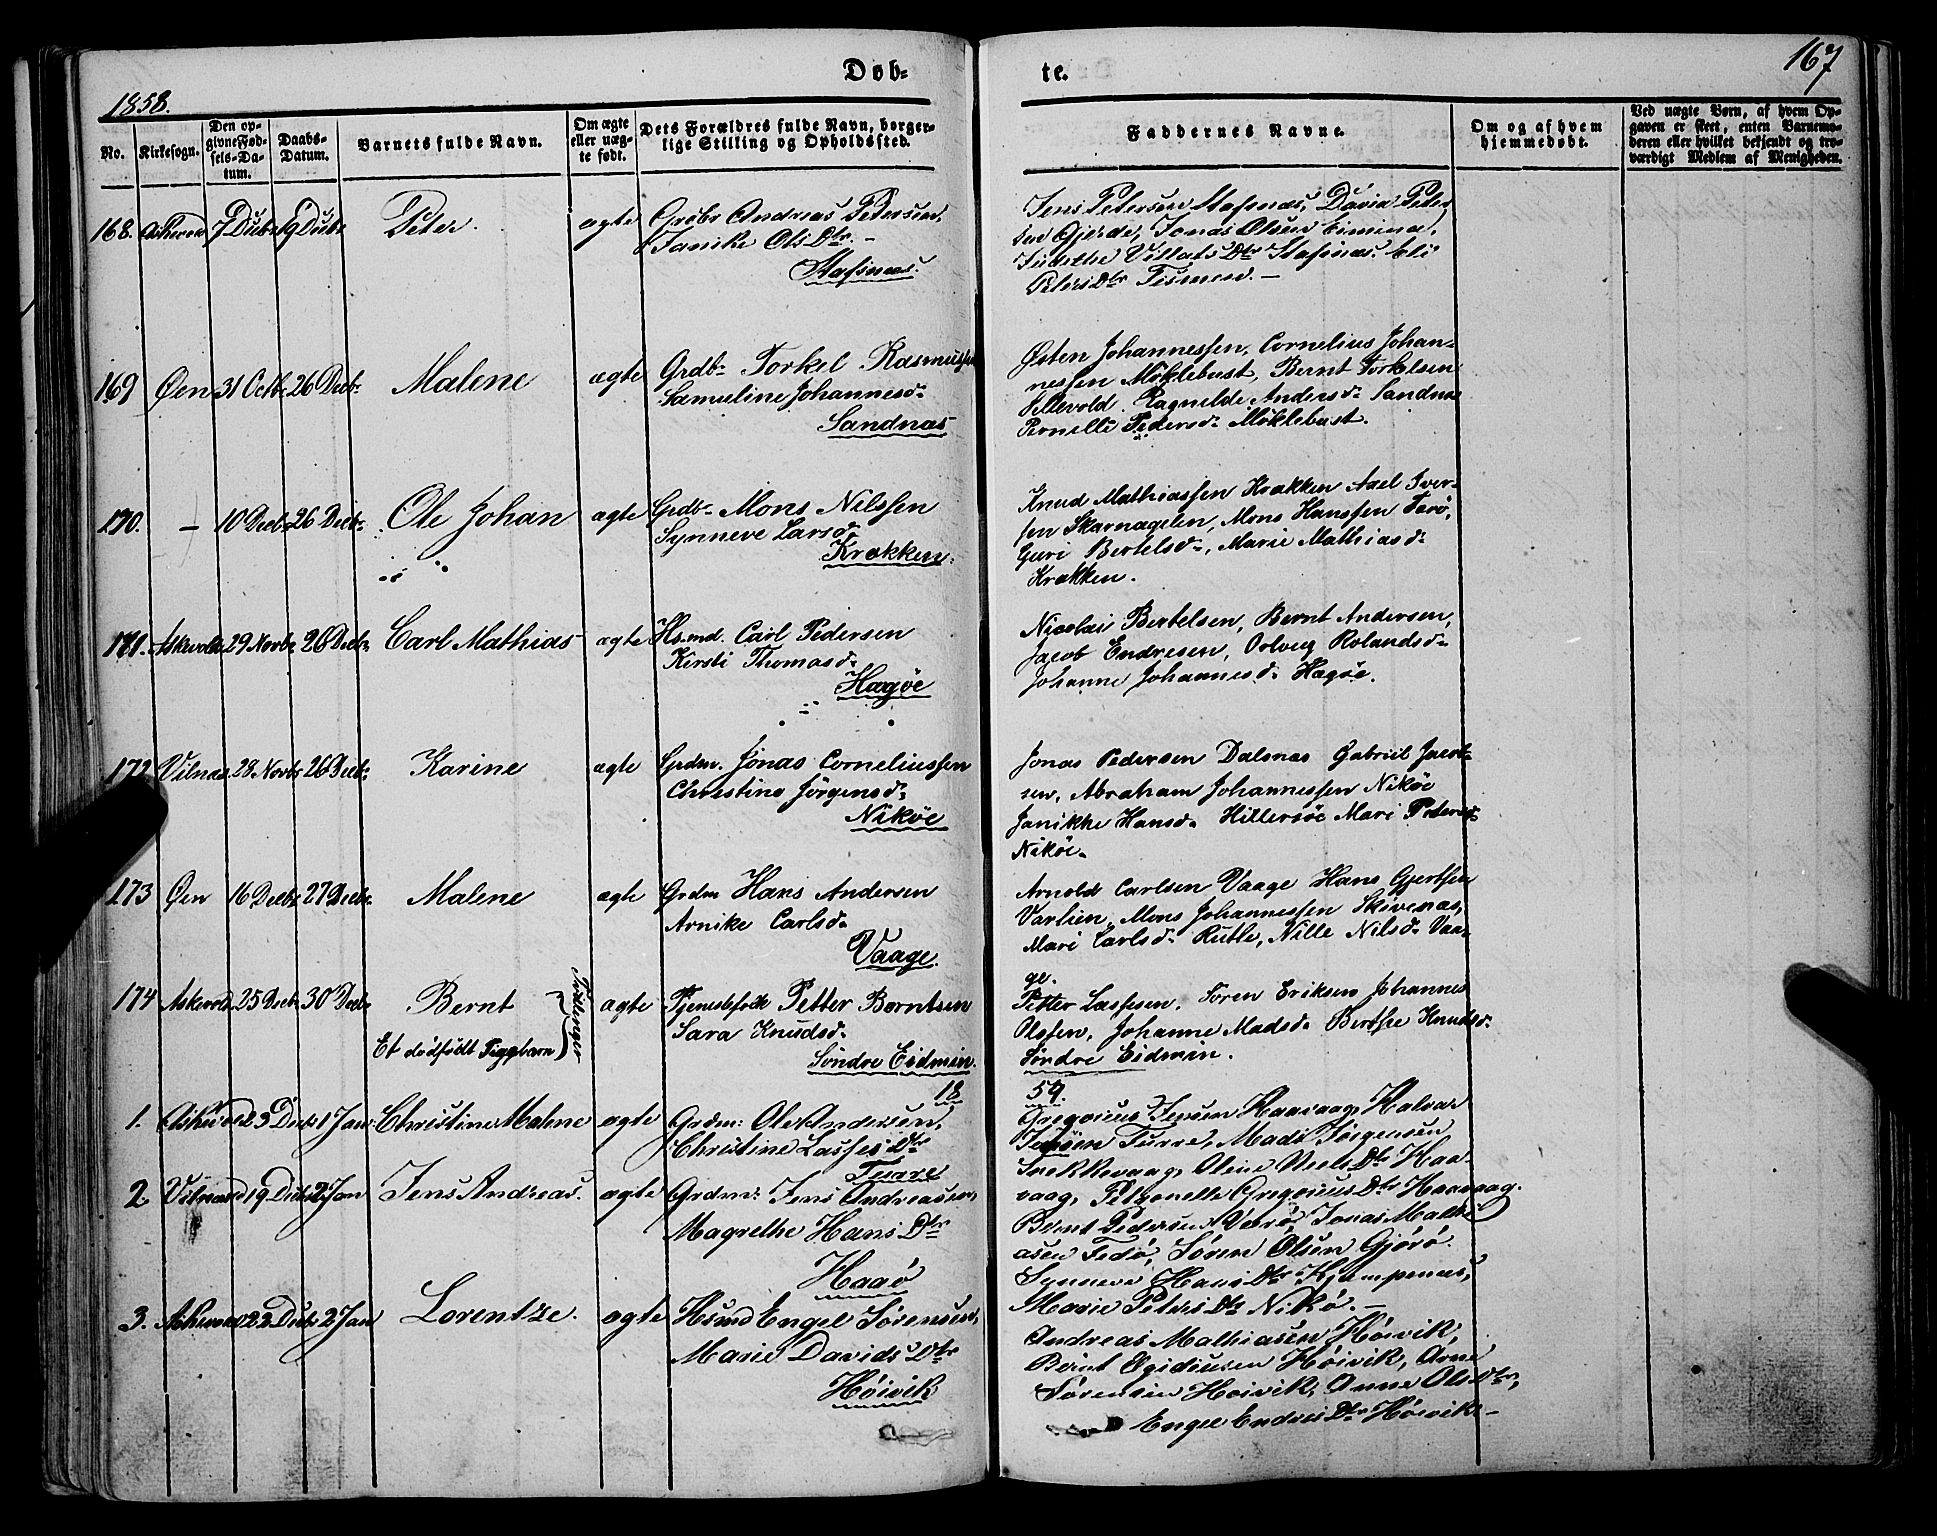 Døb-
te.
167
1858.
No.
Kirkesogn.
Den op-
givne Fød-
sels-Da-
tum.
Daabs-
Datum.
Barnets fulde Navn.
Om ægte
eller uæg-
te født.
Dets Forældres fulde Navn, borger-
lige Stilling og Opholdssted.
Faddernes Navne.
Om og af hvem
hjemmedøbt.
Ved uægte Børn, af hvem Op-
gaven er skeet, enten Barnemo-
deren eller hvilket bekjendt og tro-
værdigt Medlem af Menigheden.
168. 7 Decbr Peter. ægte Andreas Pedersen,
Olsdtr. -
Jens Petersen David Peter
sen Gjerde, Jonas Olsen
Petersdtr -
169 Øen 31 Octbr 26 Decbr Malene ægte Grdbr Torkel Rasmussen
Samueline Johannesd.
Sandnas
Østen Johannessen, Cornelius Johan-
nessen Möklebust, Bernt Torkelsen
Hellevold. Ragnilde Andersd. Sandnas
Pernille Pedersd. Möklebust.
170. - 10 Decbr 26 Decbr Ole Johan ægte Grdbr Mons Nilssen
Synneve Larsd.
Krakken.
Knud Mathiassen Krakken Axel Iver-
sen Mons Hanssen
Guri Bertelsd., Marie Mathiasd.
Krakken.
171. Askevold 29 Novbr 26 Decbr Carl Mathias ægte Hsmd. Carl Pedersen
Kirsti Thomasd.
Hægøe
Nicolai Bertelsen, Bernt Andersen,
Jacob Endresen, Rolandsd.
Johanne Johannesd. Hægøe.
172 Vilnas 28 Novbr 26 Decbr Karine ægte Grdm. Jonas Corneliussen
Christine Jörgensd.
Nikøe
Jonas Pedersen Dalsnas Gabriel Jacob-
sen, Abraham Johannessen Nikøe
Janikke Hansd. Hillersøe Mari Petersd.
Nikøe.
173 Øen 16 Decbr 27 Decbr Malene ægte Grdm Hans Andersen
Arnike Carlsd.
Vaage.
Arnold Carlsen Vaage Hans Gjertsen
Mons Johannessen Skivenas,
Mari Carlsd. Rutle, Nille Nilsd. Vaa-
ge.
174 Askevold 25 Decbr 30 Decbr Bernt Tvillinger ægte Tjenestefolk Petter Berntsen
Et dödfödt Pigebarn Sara Knudsd.
Söndre Eidmin.
Petter Lassesen. Sören Eriksen Johannes
Olssen, Johanne Madsd. Berthe Knudsd.
Söndre Eidmin.
18 59.
1. 23 Decbr 1 Jan: Christine Malene ægte Grdm: Ole Andersen,
Christine Lassesdtr
Gregorius Jensen Haavaag, Halvar
Mads Jörgensen
Olina Nielsdtr Haa-
vaag, Gregoriusdtr Haavaag.
2. Vilnas 19 Decbr 2 Jan Jens Andreas. ægte Grdm: Jens Andreassen,
Magrethe Hansdtr
Haaö
Bernt Pedersen Værö, Jonas Mathi
asen Fedö, Sören Olsen Gjörö.
Synneve Hansdtr Kjempenes,
Marie Petersdtr Nikö. -
3. 22 Decbr 2 Jan Lorentze. ægte Hsmd Engel Sørensen,
Marie Davidsdtr
Høivik
Andreas Mathiasen Høivik,
Bernt Egidiusen Høivik, Arne
Sørensen Høivik, Anne Olsdtr,
Engel Endresdtr Høivik -